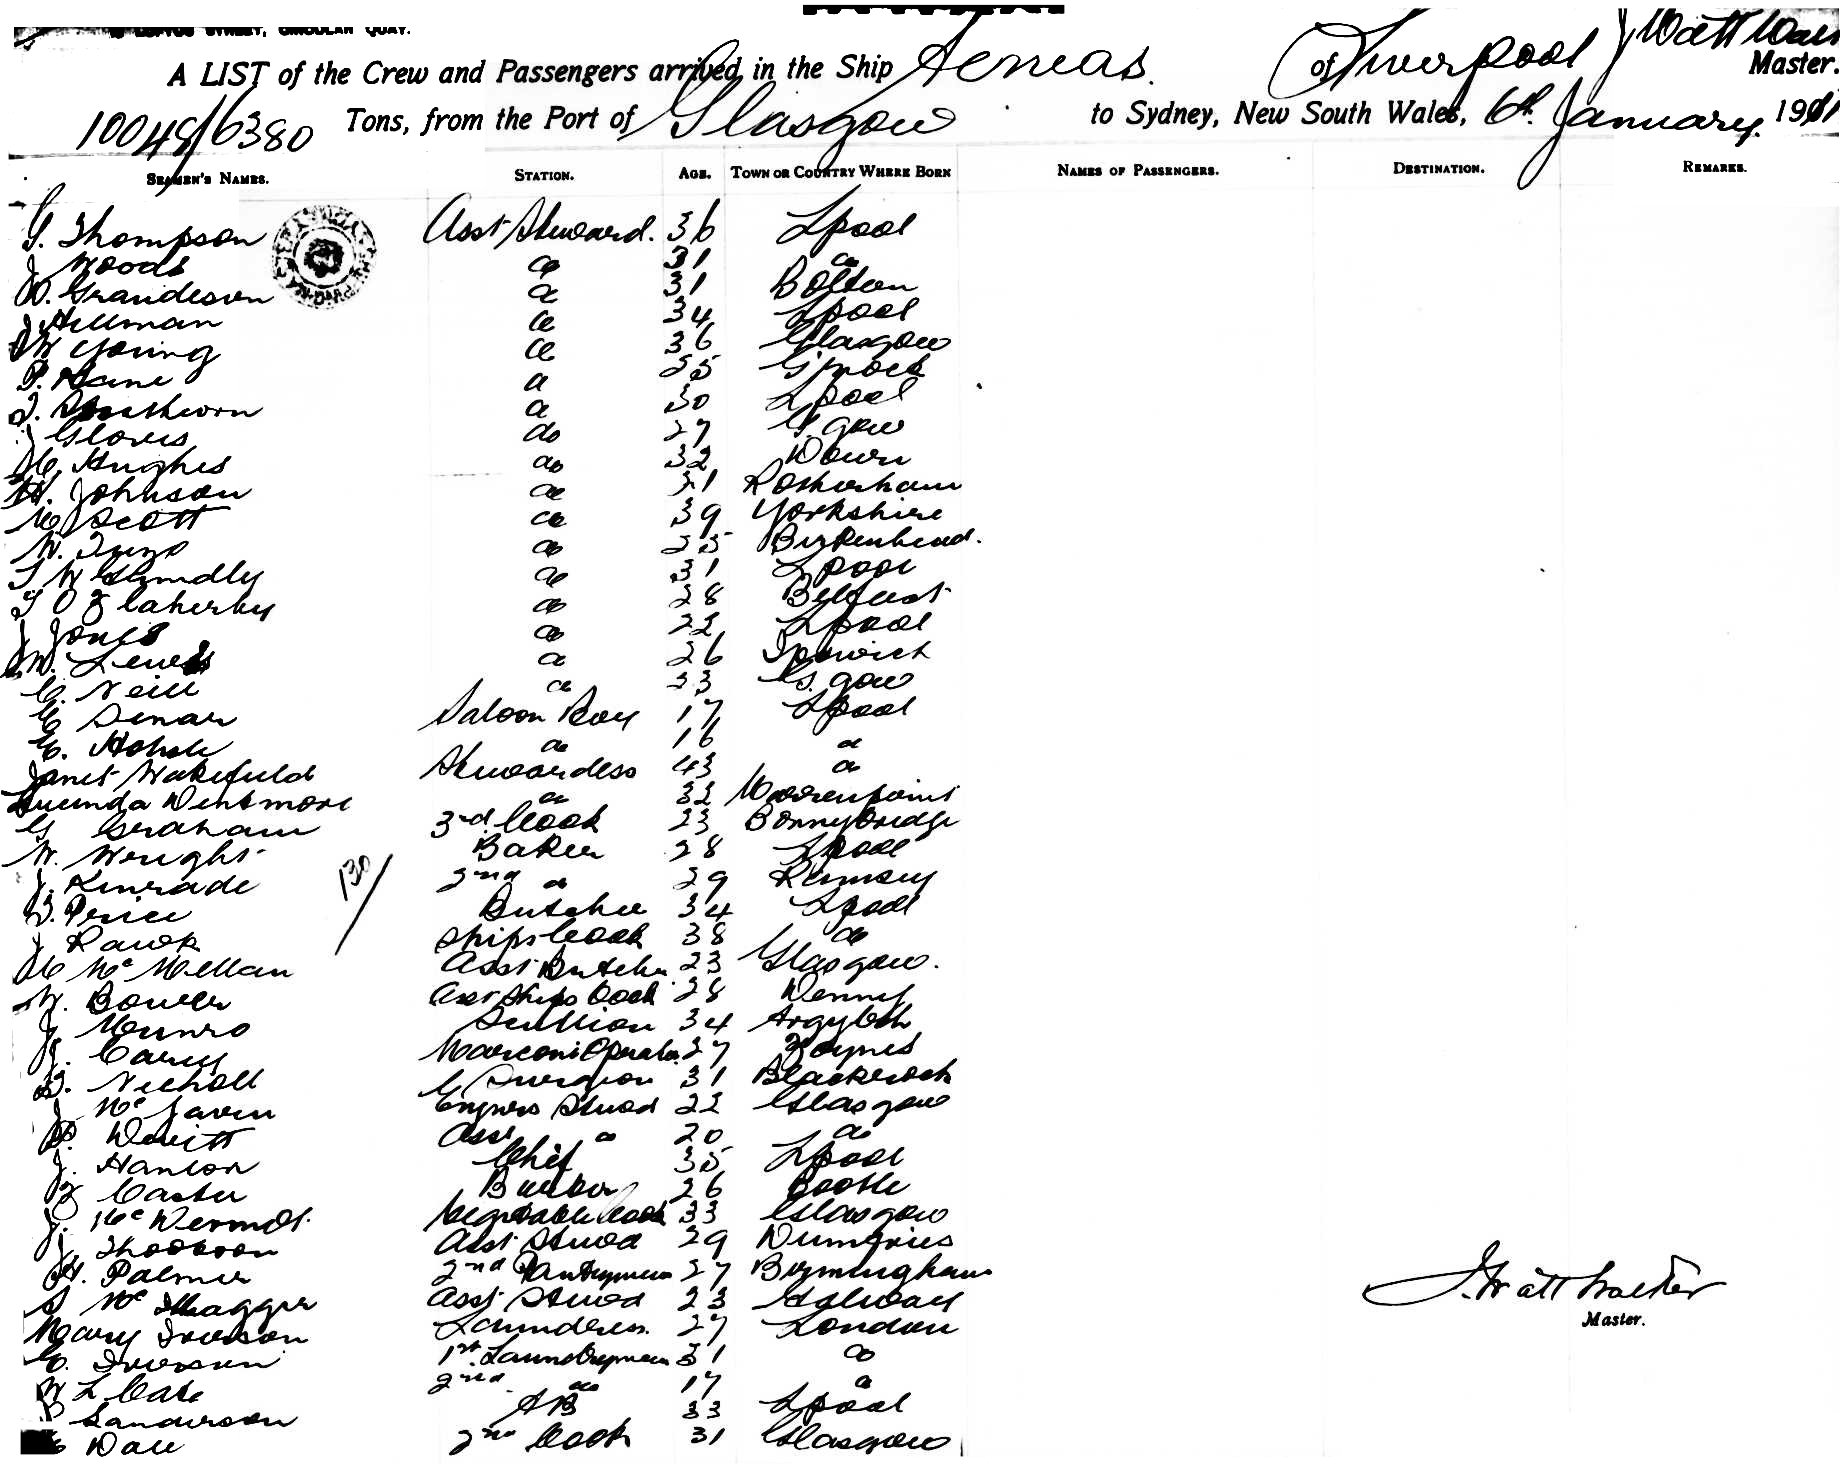 LOFTUS STREET, CIRCULAR QUAY.
A LIST of the Crew and Passengers arrived in the Ship Aeneas. of Liverpool J Watt Walk Master.
10048/6380 Tons, from the Port of Glasgow to Sydney, New South Wales, 6th January 1911
SEAMEN'S NAMES. STATION. AGE. TOWN OR COUNTRY WHERE BORN NAMES OF PASSENGERS. DESTINATION. REMARKS.
G. Thompson Asst Steward. 36 Lpool
J Woods do 31 do
Grandeson do 31 Bolton
J Hillman do 34 Lpool
W Young do 36 Glasgow
P. Kane do 25 Gpnock
do 30 Lpool
J Gloves do 27 G. gow
Hughes do 32 Down
H. Johnson do 31 Rotherham
Scott do 39 Yorkshire
W. do 25 Birkenhead.
T W do 31 Lpool
T O Flaherty do 28 Belfast
J Jones do 22 Lpool
W. Lewis do 26 Ipswich
C. Neill do 23 G. gow
C Senar Saloon Boy 17 Lpool
C. do 16 do
Janet Wakefield Stewardess 43 do
Lucinda Wentmore do 32 Warrenpoint
G Graham 3rd. Cook 23 Bonnybridge
W. Wright Baker 28 Lpool
J. Kinrade 2nd do 29 Ramsey
130/
T. Price Butcher 34 Lpool
J Rawk Ships Cook 38 do
Mc Mellan Asst Butcher 23 Glasgow.
W. Bower Asst Ships Cook 28 Denny
J Munro Scullion 34
J. Carey Marconi Operator 27 Foynes
Nicholl Surgeon 31 Blackrock
J. Mc Javen Engnrs Stewd 22 Glasgow
Dewitt Asst do 20 do
J. Hanlon Chef 35 Lpool
F Caster Barber 26 Bootle
J. McDermot Vegetable Cook 33 Glasgow
J. Thobson Asst Stewd 29 Dumfries
H. Palmer 2nd Pantryman 27 Birmingham
S Mc Asst Stewd 23 Galway
Mary Iverson Laundress. 27 London
C. Iverson 1st. Laundryman 31 do
W L Cate 2nd do 17 do
Sanderson AB 33 Lpool
Dale 2nd Cook 31 Glasgow
J. Watt Walker
Master.